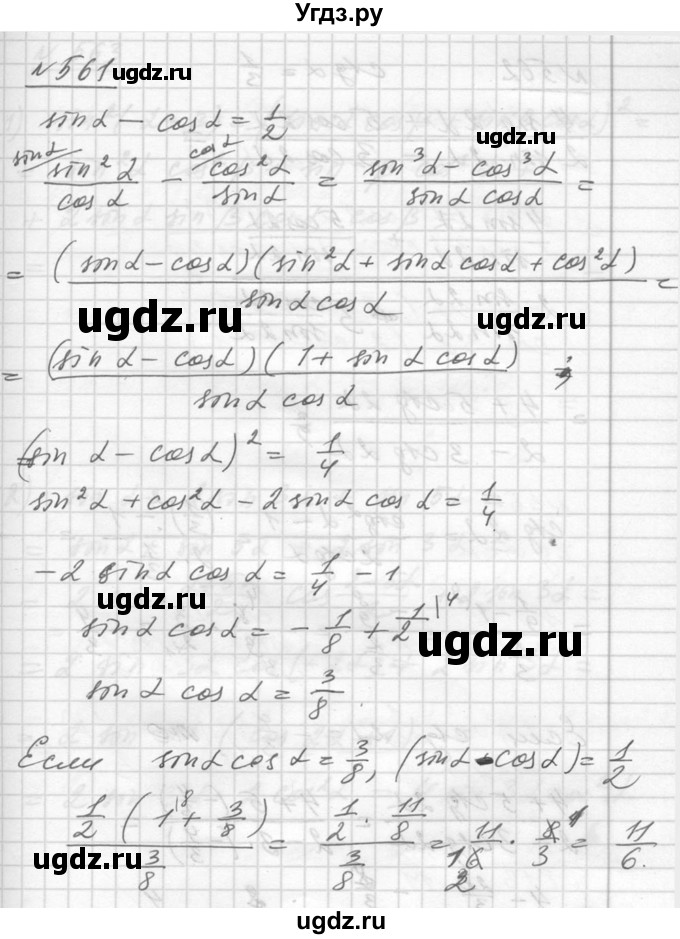 Угдз.ру
№561 ugdz.ru
sinα − cosα = 1/2
sinα cosα ugdz.ru
sin²α/cosα − cos²α/sinα = (sin³α − cos³α)/(sinα cosα) =
= (sinα − cosα)(sin²α + sinα cosα + cos²α)/(sinα cosα) =
ugdz.ru ugdz.ru
= (sinα − cosα)(1 + sinα cosα)/(sinα cosα)
(sinα − cosα)² = 1/4
ugdz.ru
sin²α + cos²α − 2 sinα cosα = 1/4
−2 sinα cosα = 1/4 − 1
ugdz.ru
sinα cosα = −1/8 + 1/2 |4
ugdz.ru
sinα cosα = 3/8
Если sinα cosα = 3/8, (sinα − cosα) = 1/2
(1/2 (1|8 + 3/8))/(3/8) = (1/2 · 11/8)/(3/8) = 11/16 · 8/3 = 11/6.
ugdz.ru ugdz.ru
ugdz.ru